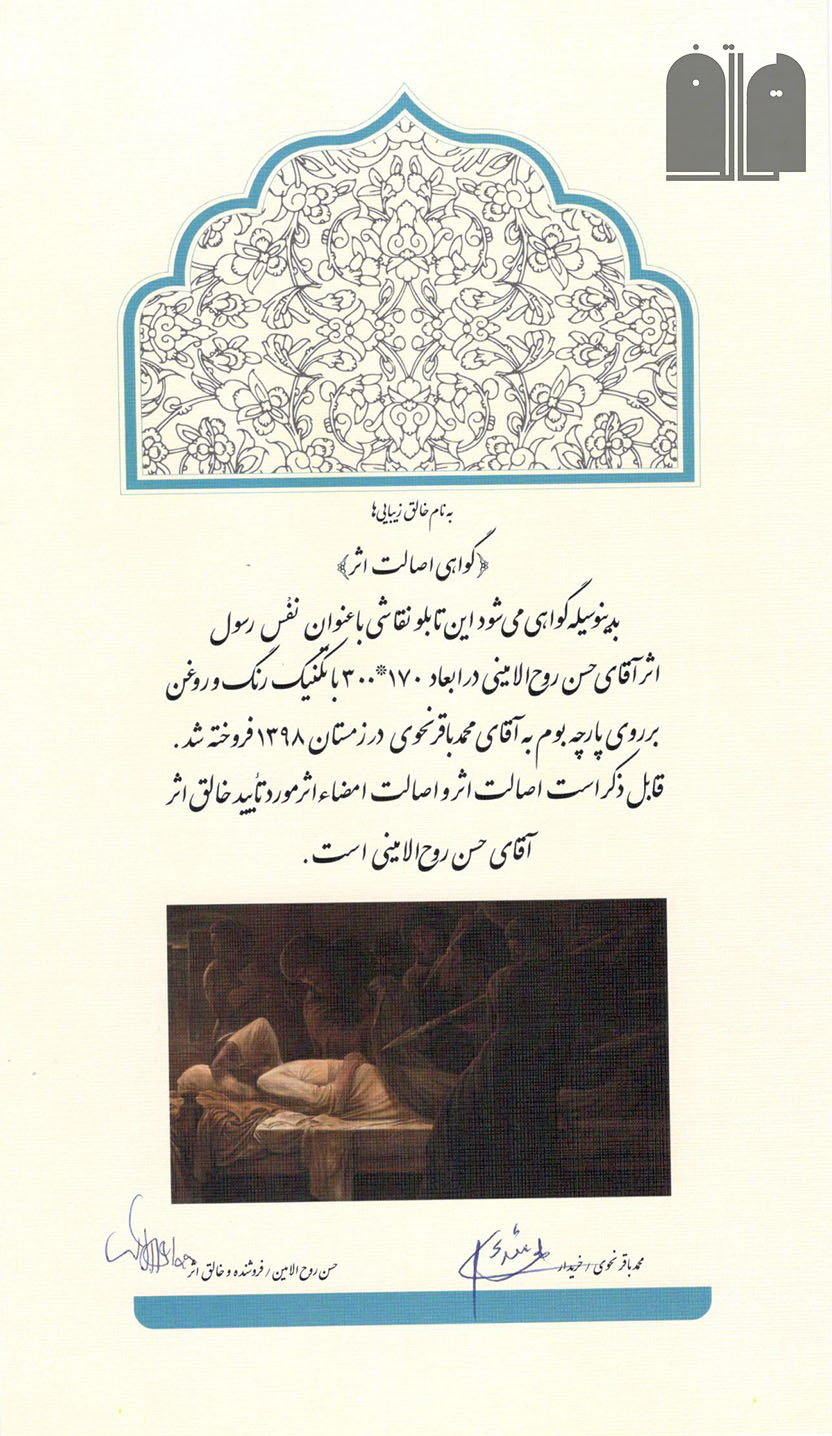 به نام خالق زیبایی‌ها
﴿گواهی اصالت اثر﴾
بدینوسیله گواهی می‌شود این تابلو نقاشی با عنوان نفْس رسول
اثر آقای حسن روح‌الامینی در ابعاد ۱۷۰*۳۰۰ با تکنیک رنگ و روغن
بر روی پارچه بوم به آقای محمدباقر نحوی در زمستان ۱۳۹۸ فروخته شد.
قابل ذکر است اصالت اثر و اصالت امضاء اثر مورد تأیید خالق اثر
آقای حسن روح‌الامینی است.
محمدباقر نحوی / خریدار
حسن روح‌الامین / فروشنده و خالق اثر